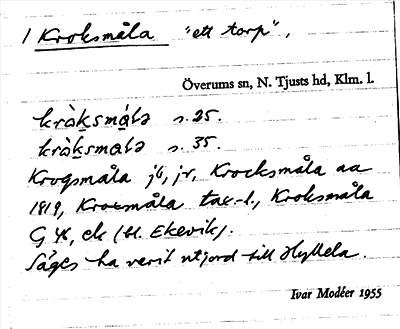 1 Kroksmåla "ett torp",
Överums sn, N. Tjusts hd, Klm. l.
kràksmá̱lə s. 25.
kràksmalə s. 35.
Krogsmåla jb, jr, Krocksmåla aa
1819, Kroksmåla tax.-l., Kroksmåla
G 4K, ek (bl. Ekevik).
Säges ha varit utjord till Hyllela.
Ivar Modéer 1955